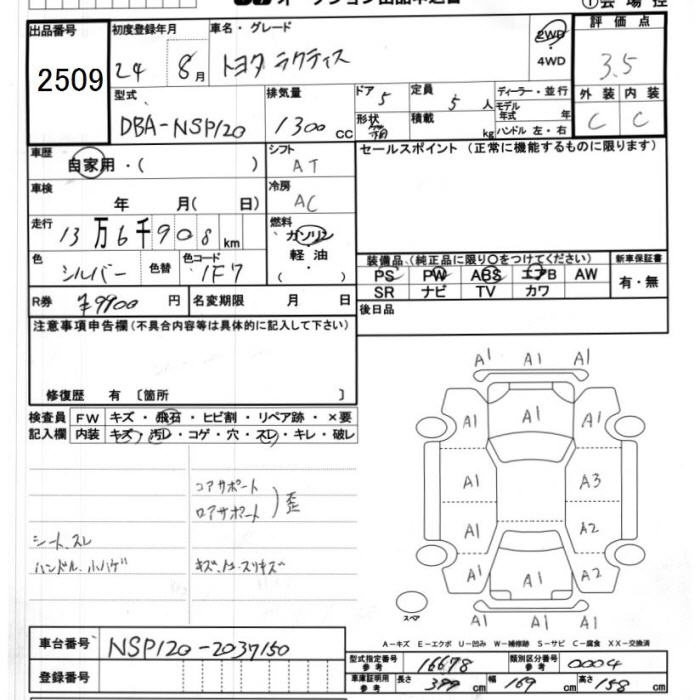 オークション出品申込書
①会場控
出品番号 初度登録年月 車名・グレード 評価点
2509 24 8月 トヨタ ラクティス 2WD 4WD 3.5
型式 排気量 ドア 5 定員 5人 ディーラー・並行 外装 内装
DBA-NSP120 1300cc 形状 箱 積載 kg モデル年式 年 C C
ハンドル 左・右
車歴 シフト セールスポイント (正常に機能するものに限ります)
自家用・( ) AT
車検 冷房
年 月(日) AC
走行 燃料
13万6千908km ガソリン
軽油
色 色替 色コード ・( )
シルバー 1F7
装備品 (純正品に限り○をつけてください) 新車保証書
PS PW ABS エアB AW 有・無
SR ナビ TV カワ
R券 ¥9900円 名変期限 月 日 後日品
注意事項申告欄(不具合内容等は具体的に記入して下さい)
修復歴 有 [箇所 ]
検査員 FW キズ・飛石・ヒビ割・リペア跡・×要
記入欄 内装 キズ・汚レ・コゲ・穴・スレ・キレ・破レ
コアサポート
ロアサポート ) 歪
シート、スレ
ハンドル、小ハゲ
A1 A1 A1
A1 A1 A1
A1 A3
A1 A2
A1 A1 A2
A1 A1 A1
スペア
A-キズ E-エクボ U-凹み W-補修跡 S-サビ C-腐食 XX-交換済
車台番号 NSP120-2037150
登録番号
型式指定番号 参考 16678 類別区分番号 参考 0004
車庫証明用 参考 長さ 399cm 幅 169cm 高さ 158cm